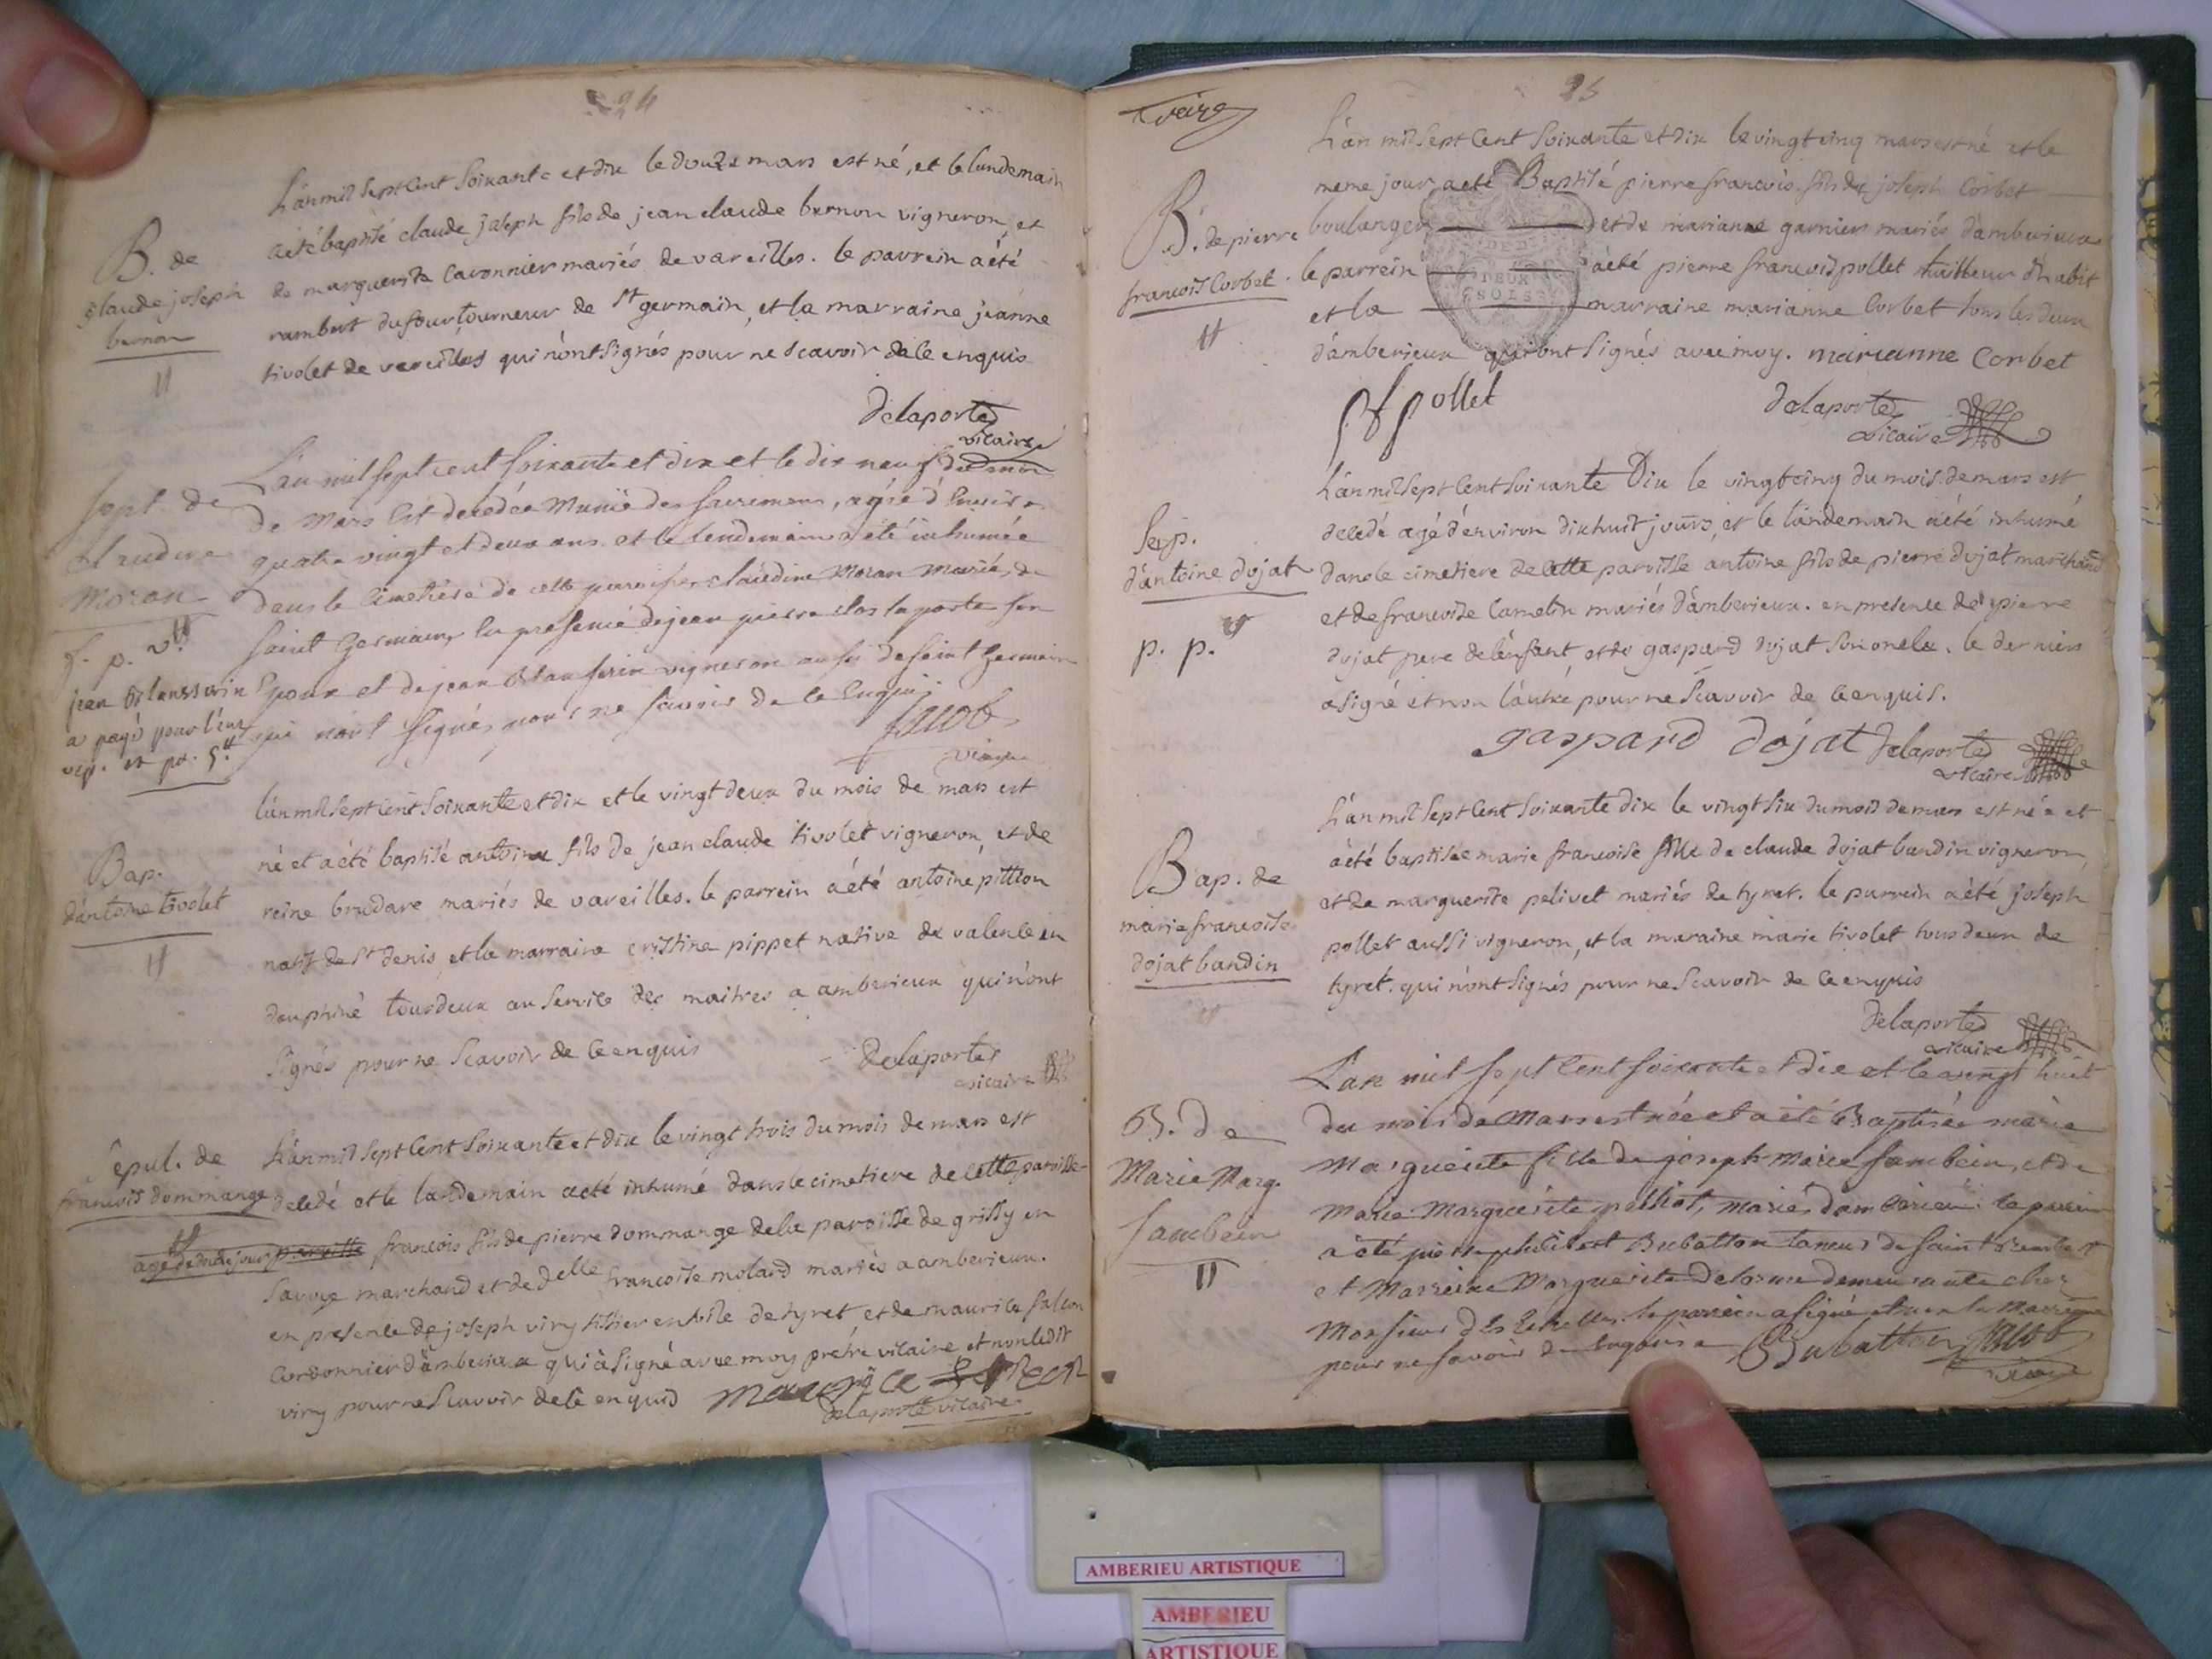 24
B. de
claude joseph
bernon
L'an mil sept Cent Soixante et dix le douze mars est né, et le lendemain
a été baptisé claude joseph fils de jean claude bernon vigneron, et
de marguerite Cavonnier mariés de vareilles. le parrein a été
rambert dufour tourneur de St germain, et la marraine jeanne
tivolet de vareilles qui n'ont signés pour ne scavoir de ce enquis
Delaporte
vicaire
Sept. de
Claudine
Moran
jean
a payé pour l'en
L'an mil sept cent soixante et dix et le dix neuf du mois
de Mars est decedée Munie des sacremens, agée d'environ
quatre vingt et deux ans et le lendemain a été inhumée
dans le Cimetiére de cette paroisse claudine Moran Mariée, de
saint Germain, en presence de jean pierre laporte son
epoux et de jean vigneron aussi de saint Germain
qui n'ont signés pour ne savoir de ce Enquis
vicaire
Bap.
d'antoine tivolet
l'an mil sept Cent Soixante et dix et le vingt deux du mois de mars est
né et a été baptisé antoine fils de jean claude tivolet vigneron, et de
reine brudare mariés de vareilles. le parrein a été antoine pitton
natif de St denis, et la marraine cristine pippet native de valence en
dauphiné tous deux au service des maitres a amberieux qui n'ont
signés pour ne Scavoir de Ce enquis
Delaporte
vicaire
Sepul. de
francois dommange
L'an mil sept Cent Soixante et dix le vingt trois du mois de mars est
decedé et le landemain a eté inhumé dans le cimetiere de cette paroisse
francois fils de pierre dommange de la paroisse de grissy en
Savoye marchand et de delle francoise molard mariés a amberieux.
en presence de joseph viry de tyret, et de maurice falcon
Cordonnier d'amberieux qui a signé avec moy prétre vicaire et non ledit
viry pour ne Scavoir de ce enquis
delaporte vicaire
25
B. de pierre
francois Corbet.
L'an mil sept Cent Soixante et dix le vingt cinq mars est né et le
meme jour a eté Baptisé pierre francois fils de joseph Corbet
boulanger et de marianne garnier mariés d'amberieux
le parrein a été pierre francois pollet tailleur d'habit
et la marraine marianne Corbet tous les deux
d'amberieux qui ont signés avec moy. marianne Corbet
DEUX
SOLS
pf pollet
Delaporte
vicaire
Sep.
d'antoine dojat
p. p.
L'an mil sept Cent Soixante Dix le vingt cinq du mois de mars est
decedé agé d'environ dix huit jours, et le landemain a été inhumé
dans le cimetiere de cette paroisse antoine fils de pierre dojat marchand
et de francoise Camelin mariés d'amberieux. en presence de pierre
dojat pere de l'enfant, et de gaspard dojat son oncle. le dernier
a signé et non l'autre pour ne Scavoir de ce enquis.
gaspard dojat Delaporte
vicaire
Bap. de
marie francoise
dojat bandin
L'an mil sept Cent Soixante dix le vingt six du mois de mars est née et
a été baptisée marie francoise fille de claude dojat bandin vigneron,
et de marguerite pelivet mariés de tyret. le parrein a été joseph
pollet aussi vigneron, et la maraine marie tivolet tous deux de
tyret. qui n'ont signés pour ne Scavoir de Ce enquis
Delaporte
vicaire
B. de
Marie Marg.
Sambein
L'an mil sept Cent soixante et dix et le vingt huit
du mois de Mars est née et a été Baptisée marie
Marguerite fille de joseph Marie Sambein, et de
Marie Marguerite mariés d'amberieu. le parrein
a été pierre philibert Bubatton taneur de saint Rambert
et Marreine Marguerite Delorme demeurante chez
Monsieur le parrein a signé et non la Marreine
pour ne savoir de enquise Bubatton
vicaire
AMBERIEU ARTISTIQUE
AMBERIEU
ARTISTIQUE